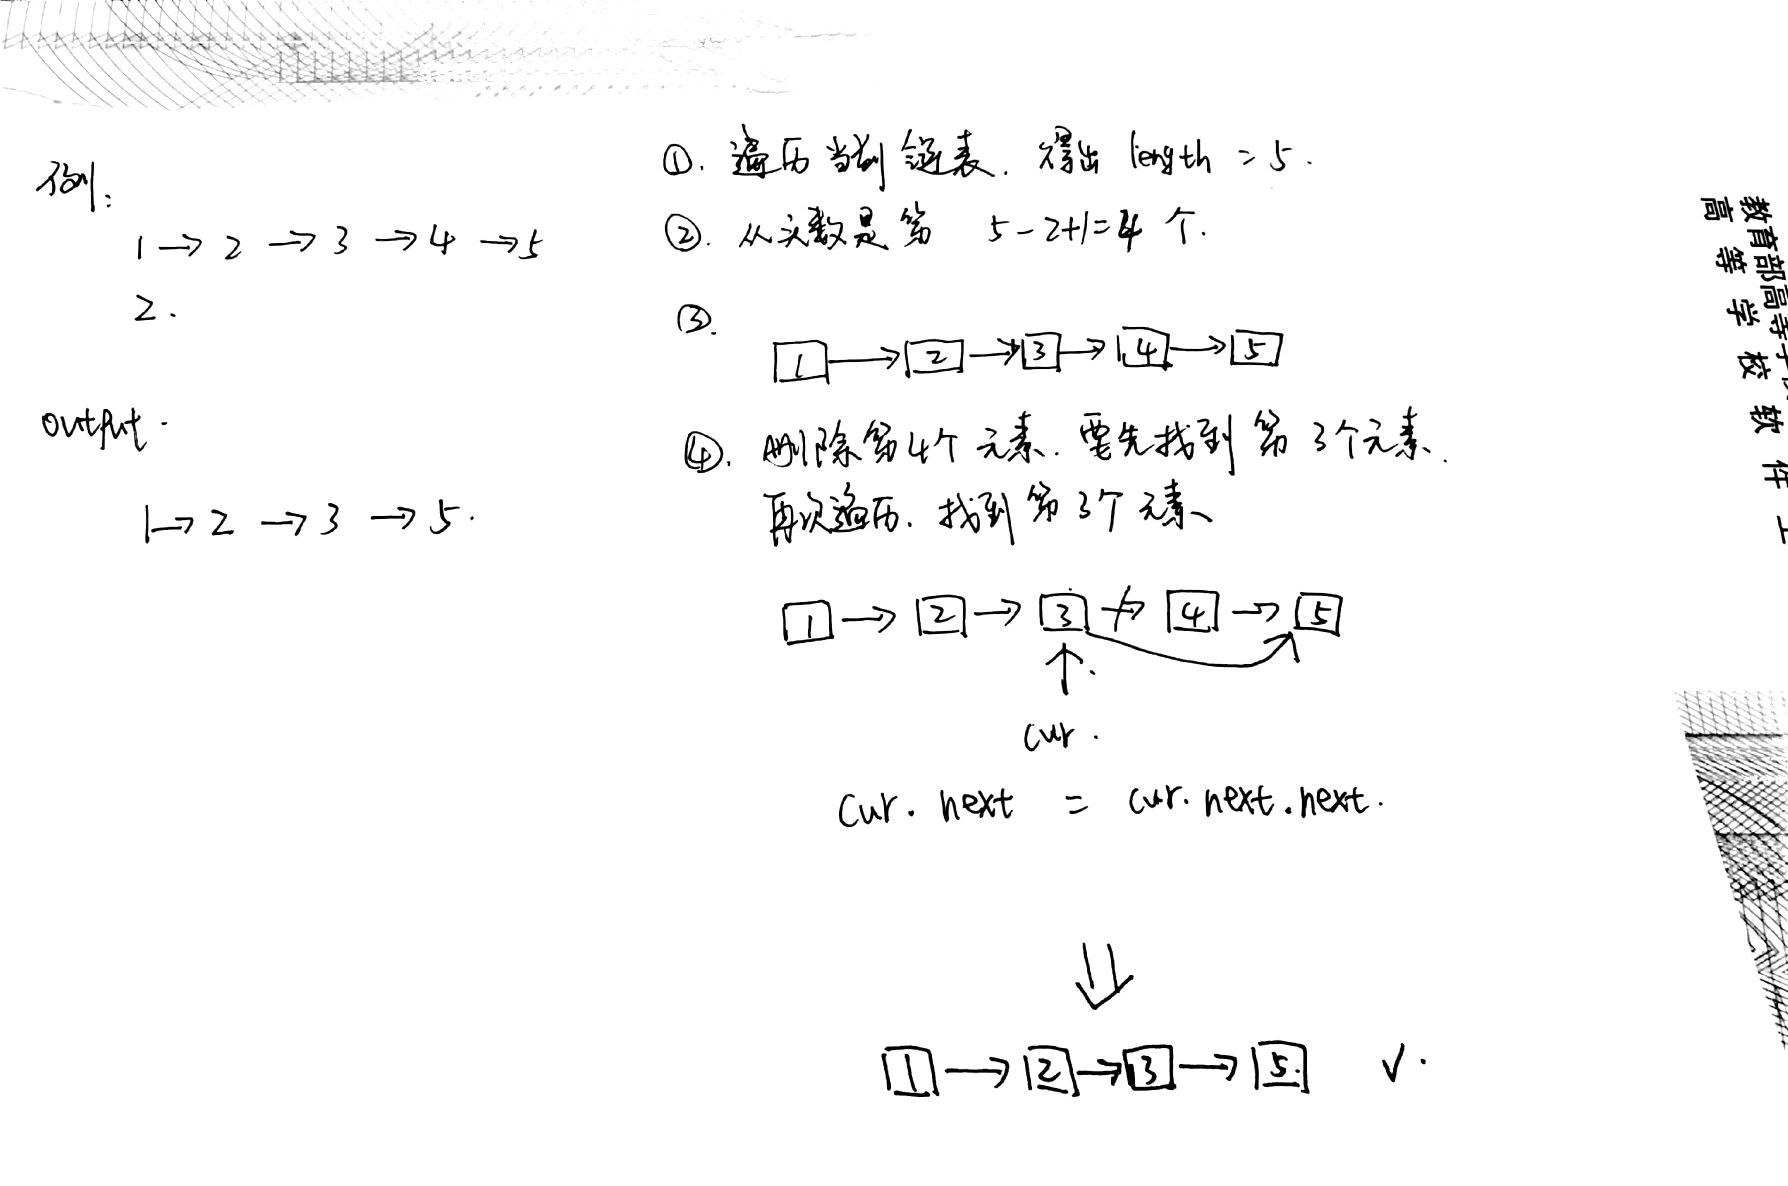 例:
1 → 2 → 3 → 4 → 5
2.
output.
1 → 2 → 3 → 5.
①. 遍历当前链表. 得出 length = 5.
②. 从头数是第 5-2+1=4 个.
③.
1 → 2 → 3 → 4 → 5
④. 删除第4个元素. 要先找到第3个元素.
再次遍历. 找到第3个元素、
1 → 2 → 3 → 4 → 5
cur.
cur.next = cur.next.next.
1 → 2 → 3 → 5. ✓.
教育部高等学
高等学校软件工